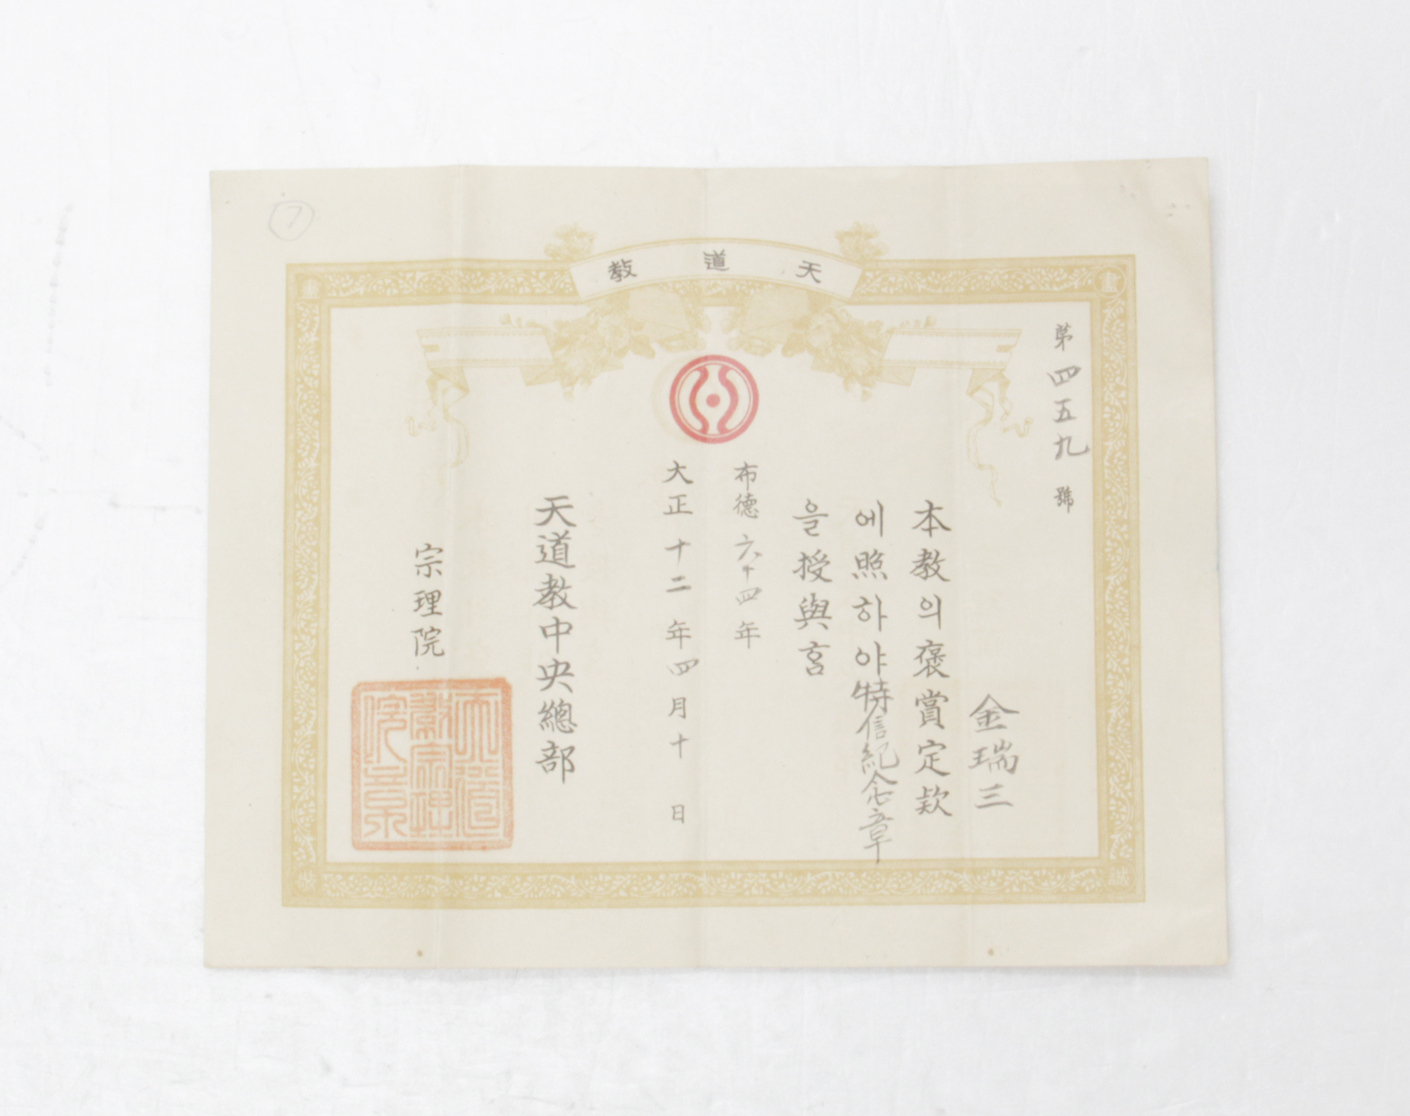 7
天道教
第四五九號
金瑞三
本教의褒賞定欵
에照하야特信紀念章
을授與홈
布德六十四年
大正十二年四月十日
天道教中央總部
宗理院